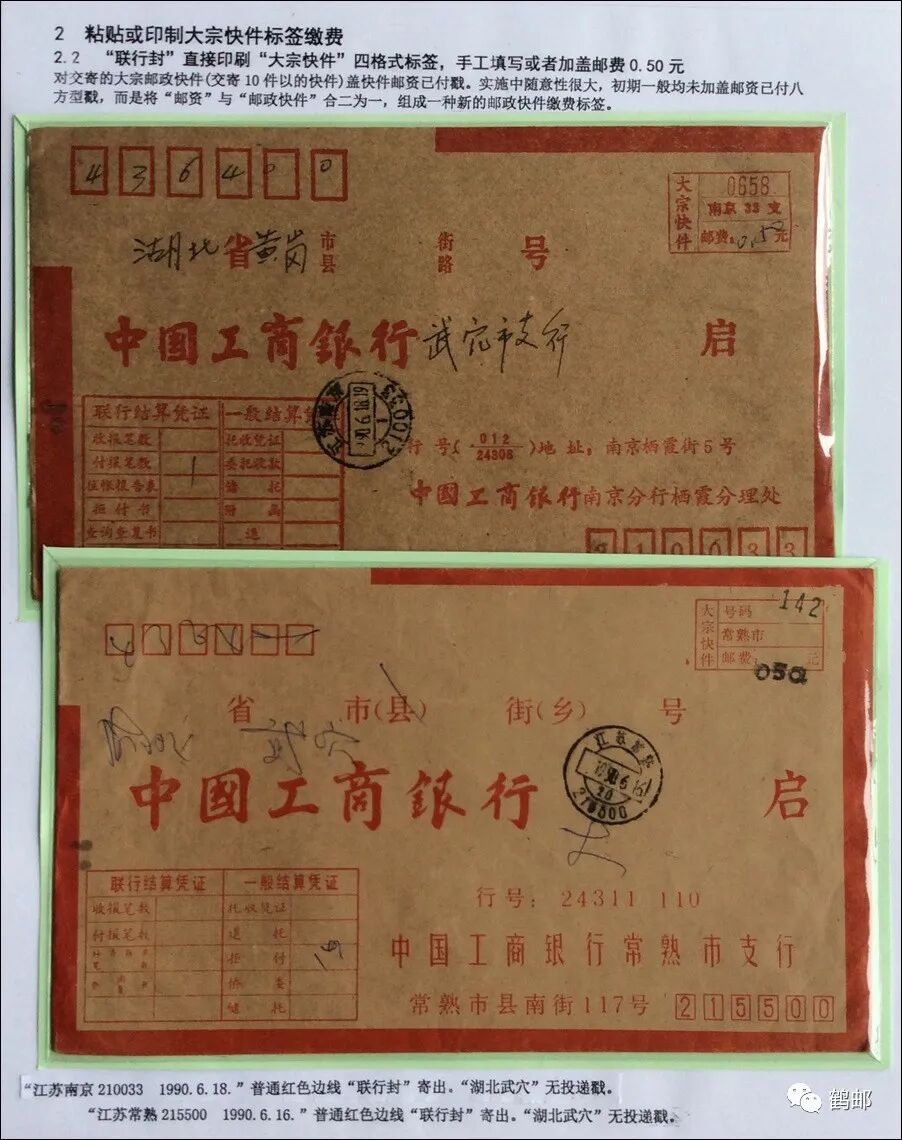 2 粘贴或印制大宗快件标签缴费
2.2 “联行封”直接印刷“大宗快件”四格式标签，手工填写或者加盖邮费0.50元
对交寄的大宗邮政快件(交寄10件以的快件)盖快件邮资已付戳。实施中随意性很大，初期一般均未加盖邮资已付八
方型戳，而是将“邮资”与“邮政快件”合二为一，组成一种新的邮政快件缴费标签。
436400
大宗快件
0658
南京 33 支
邮费：0.50元
湖北省黄岗市县 街路 号
中国工商銀行武穴市支行 启
联行结算凭证 一般结算凭证
收报笔数 托收凭证
付报笔数 1 委托收款
往帐报告表 储托
拒付书
查询查复书 退
90.6.18.19
行号(012/24308)地址：南京栖霞街5号
中国工商银行南京分行栖霞分理处
210033
大宗快件
号码 142
常熟市
邮费： 元
050
省 市(县) 街(乡) 号
武穴
中國工商銀行 启
江苏常熟
1990.6.16
20
215500
联行结算凭证 一般结算凭证
收报笔数 托收凭证
付报笔数 退托
拒付
侨委
储托
行号：24311 110
中国工商银行常熟市支行
常熟市县南街117号 215500
“江苏南京210033 1990.6.18.”普通红色边线“联行封”寄出。“湖北武穴”无投递戳。
“江苏常熟215500 1990.6.16.”普通红色边线“联行封”寄出。“湖北武穴”无投递戳。
鹤邮